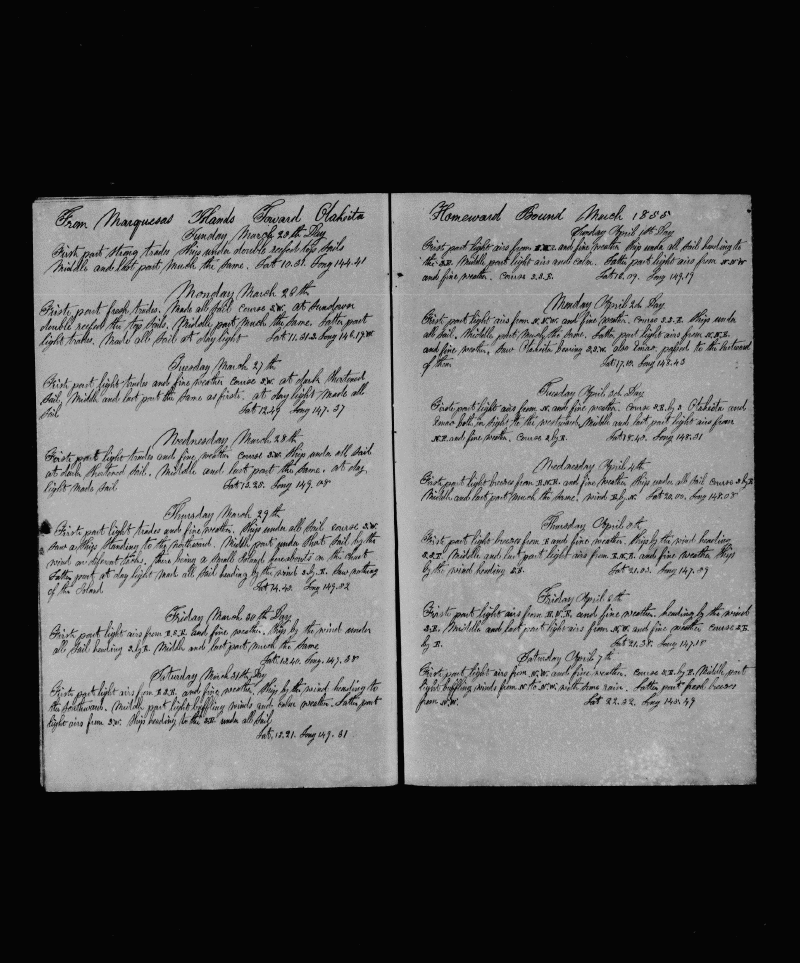 From Marquesas Islands Toward Otaheita
Sunday March 25th Day
First part strong trades Ship under double reefed top sails
Middle and last part much the same. Lat 10.31. Long 144.41
Monday March 26th
Firste part fresh trades. Made all sail course S.W. at Sundown
double reefed the top sails. Middle part much the same. Latter part
light trades. Made all Sail at day light Lat 11.31.S Long 146.17.W
Tuesday March 27th
Firste part light trades and fine weather course S.W. at dark Shortened
Sail, Middle and last part the Same as firste. at day light made all
Sail Lat 12.29 Long 147.37
Wednesday March 28th
Firste part light trades and fine weather course S.W. Ship under all Sail
at dark Shortened Sail. Middle and last part the Same. at day
light made Sail Lat 13.28. Long 149.08
Thursday March 29th
Firste part light trades and fine weather. Ship under all Sail course S.W.
Saw a Ship Standing to the northward. Middle part under Short Sail by the
wind on diferent tacks. There being a Small Island hereabouts on the chart
Latter part at day light Made all Sail heading by the wind S.by.E. Saw nothing
of the Island Lat 14.40. Long 149.52
Friday March 30th Day
Firste part light airs from E.S.E. and fine weather. Ship by the wind under
all Sail heading S.by.E. Middle and last part much the Same
Lat 15.40. Long. 149.38
Saturday March 31th Day
Firste part light airs from E.S.E. and fine weather. Ship by the wind heading to
the Southward. Middle part light baffling winds and calm weather. Latter part
light airs from S.W. Ship heading to the S.E. under all Sail
Lat. 15.21. Long 149.31
Homeward Bound March 1855
Sunday April 1th Day
Firste part light airs from and fine weather Ship under all Sail heading to
the S.E. Middle part light airs and calm. Latter part light airs from N.N.W
and fine weather. Course S.S.E. Lat 16.09. Long 149.19
Monday April 2d Day
Firste part light airs from N.N.W. and fine weather. Course S.S.E. Ship under
all Sail. Middle part much the Same. Latter part light airs from N.N.E.
and fine weather. Saw Otaheita bearing S.S.W. also Eimao. passed to the Eastward
of them Lat 17.19. Long 148.43
Tuesday April 3d Day
Firste part light airs from N. and fine weather. Course S.E. by S Otaheita and
Eimao both in Sight to the westward. Middle and last part light airs from
N.E. and fine weather. Course S.by.E. Lat 18.40. Long 148.31
Wednesday April 4th
Firste part light breezes from E.N.E. and fine weather Ship under all Sail Course S.by E
Middle and last part much the Same. wind E.by.N. Lat 20.00. Long 148.08
Thursday April 5th
Firste part light breezes from E and fine weather. Ship by the wind heading
S.S.E. Middle and last part light airs from E.N.E. and fine weather Ship
by the wind heading S.E. Lat 21.03. Long 147.39
Friday April 6th
Firste part light airs from E.N.E. and fine weather. heading by the wind
S.E. Middle and last part light airs from N.W. and fine weather course S.E.
by E. Lat 21.38. Long 147.18
Saturday April 7th
Firste part light airs from N.W. and fine weather. Course S.E. by E. Middle part
light baffling winds from N to N.W. with Some rain. Latter part fresh breezes
from N.W. Lat 22.32. Long 145.49